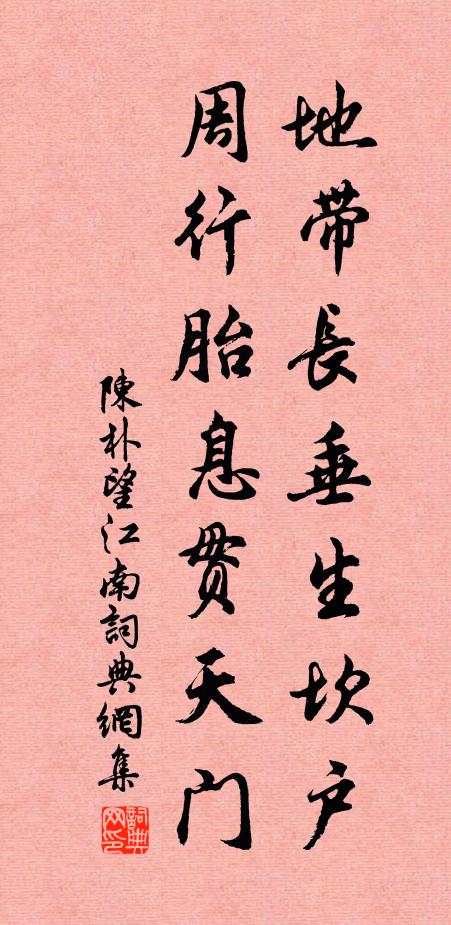 地帶長垂生坎户
周行胎息贯天门
陳朴望江南詞典網集
詞典网印